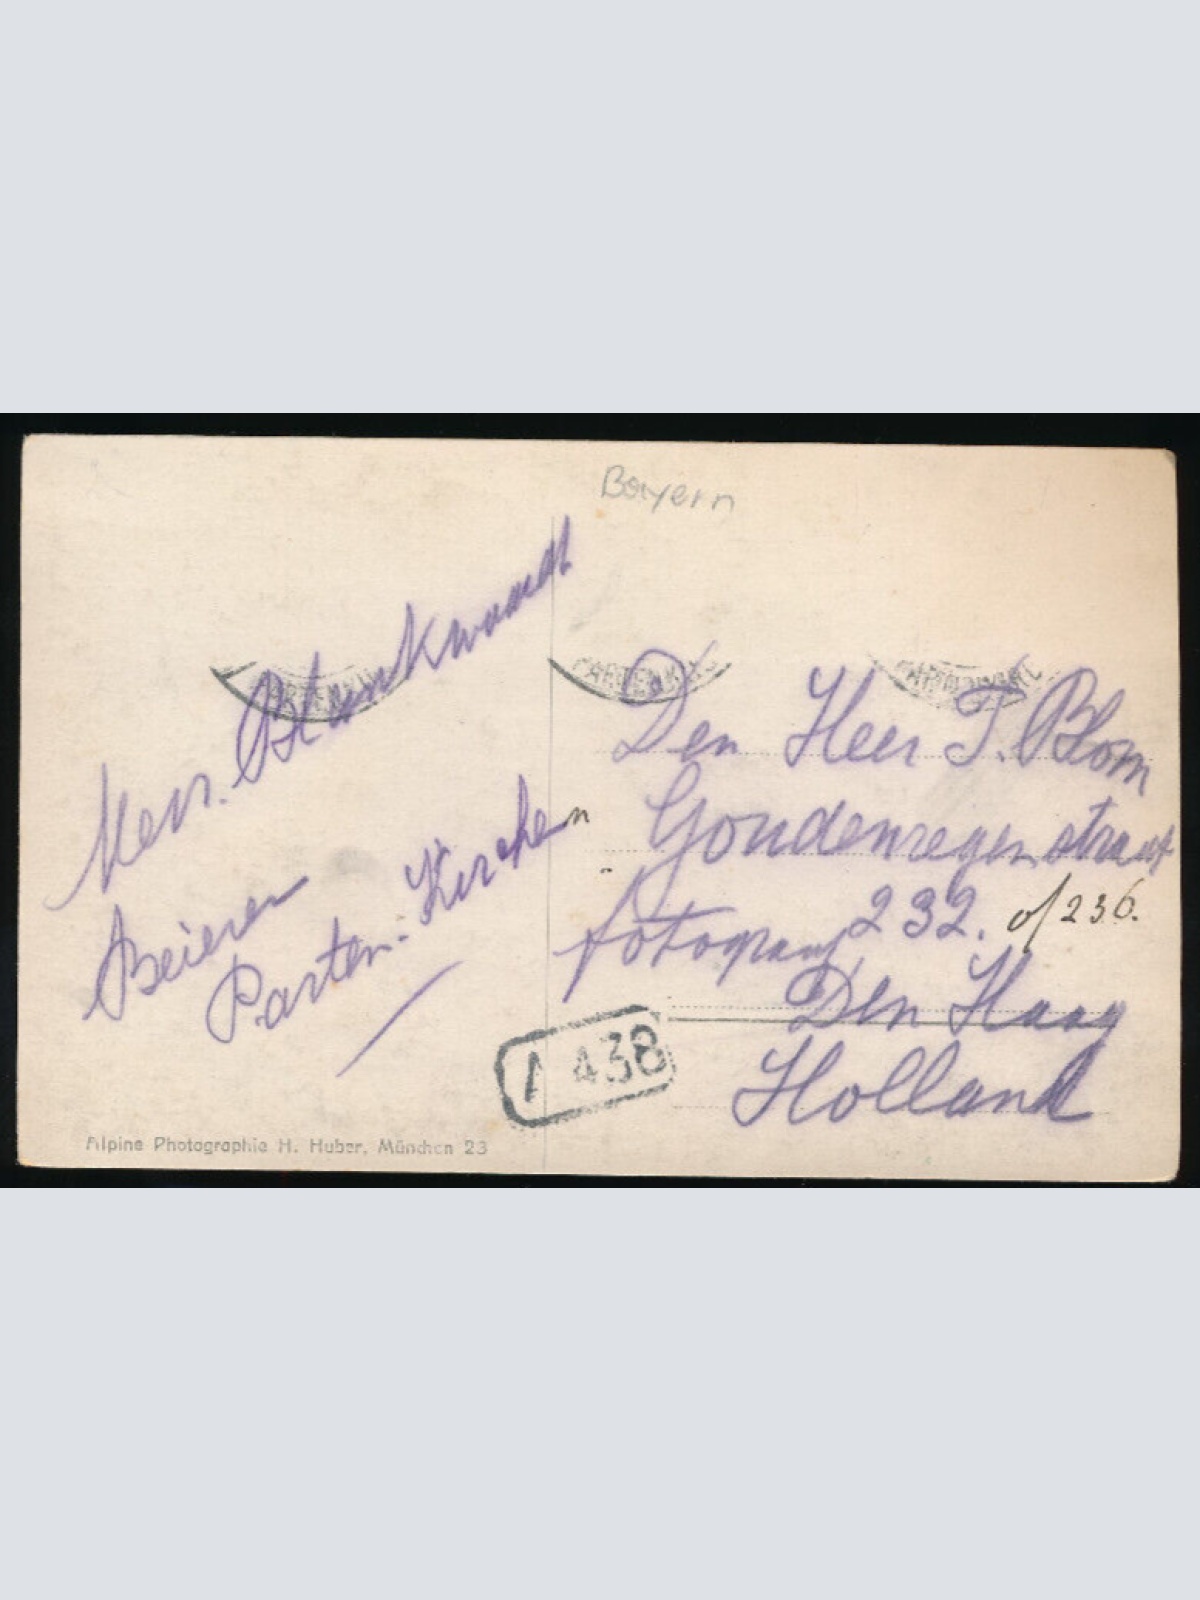 Bayern
Mevr. Blankwaardt
Beieren
Parten-Kirchen
Den Heer T. Blom
Goudenregenstraat
232. of 236.
fotograaf
Den Haag
Holland
A 438
Alpine Photographie H. Huber, München 23